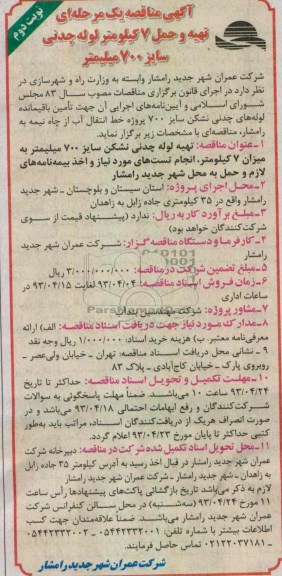 نوبت دوم
آگهی مناقصه یک مرحله‌ای
تهیه و حمل ۷ کیلومتر لوله چدنی
سایز ۷۰۰ میلیمتر
شرکت عمران شهر جدید رامشار وابسته به وزارت راه و شهرسازی در
نظر دارد در اجرای قانون برگزاری مناقصات مصوب سال ۸۳ مجلس
شورای اسلامی و آیین‌نامه‌های اجرایی آن جهت تأمین باقیمانده
لوله‌های چدنی نشکن سایز ۷۰۰ پروژه خط انتقال آب از چاه نیمه به
رامشار، مناقصه‌ای با مشخصات زیر برگزار نماید.
۱-عنوان مناقصه: تهیه لوله چدنی نشکن سایز ۷۰۰ میلیمتر به
میزان ۷ کیلومتر، انجام تست‌های مورد نیاز و اخذ بیمه‌نامه‌های
لازم و حمل به محل شهر جدید رامشار
۲-محل اجرای پروژه: استان سیستان و بلوچستان - شهر جدید
رامشار واقع در ۳۵ کیلومتری جاده زابل به زاهدان
۳-مبلغ برآورد کار به ریال: ندارد (پیشنهاد قیمت از سوی
شرکت‌کنندگان خواهد بود)
۴-کارفرما و دستگاه مناقصه‌گزار: شرکت عمران شهر جدید
رامشار
۵-مبلغ تضمین شرکت در مناقصه: ۳/۰۰۰/۰۰۰/۰۰۰ ریال
۶-زمان فروش اسناد مناقصه: ۹۳/۰۴/۰۴ لغایت ۹۳/۰۴/۱۵ در
ساعات اداری
۷-مشاور پروژه: شرکت مهندسی بنداب
۸-مدارک مورد نیاز جهت دریافت اسناد مناقصه: الف) ارائه
معرفی‌نامه معتبر، ب) هزینه خرید اسناد: ۱/۰۰۰/۰۰۰ ریال وجه نقد
۹ - نشانی محل دریافت اسناد مناقصه: تهران - خیابان ولی‌عصر -
روبروی پارک - خیابان کاج‌آبادی - پلاک ۸۳
۱۰-مهلت تکمیل و تحویل اسناد مناقصه: حداکثر تا تاریخ
۹۳/۰۴/۲۴ ساعت ۱۰ می‌باشد. ضمناً مهلت پاسخگوئی به سوالات
شرکت‌کنندگان و رفع ابهامات احتمالی ۹۳/۰۴/۱۸ می‌باشد و در
صورت انصراف هریک از دریافت‌کنندگان اسناد، مراتب باید به‌طور
کتبی حداکثر تا پایان مورخ ۹۳/۰۴/۲۳ اعلام گردد.
۱۱-محل تحویل اسناد تکمیل شده شرکت در مناقصه: دبیرخانه شرکت
عمران شهر جدید رامشار در قبال اخذ رسید به آدرس کیلومتر ۳۵ جاده زابل
به زاهدان - شهر جدید رامشار - شرکت عمران شهر جدید رامشار
لازم به ذکر می‌باشد تاریخ بازگشائی پاکت‌های پیشنهادها رأس ساعت
۱۱ مورخ ۹۳/۰۴/۲۴ (سه‌شنبه) در محل سالن کنفرانس شرکت
عمران شهر جدید رامشار می‌باشد. ضمناً علاقه‌مندان جهت کسب
اطلاعات بیشتر با شماره تلفن: ۰۵۴۴۲۳۳۲۰۰۱ - ۰۵۴۴۲۳۳۲۰۰۲
- ۰۲۱۲۲۰۳۷۱۸۱ تماس حاصل فرمایند.
شرکت عمران شهر جدید رامشار